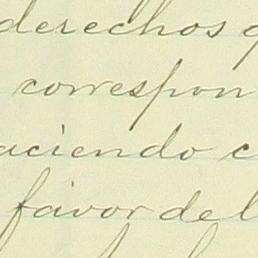 derechos
correspon
aciendo c
favor del